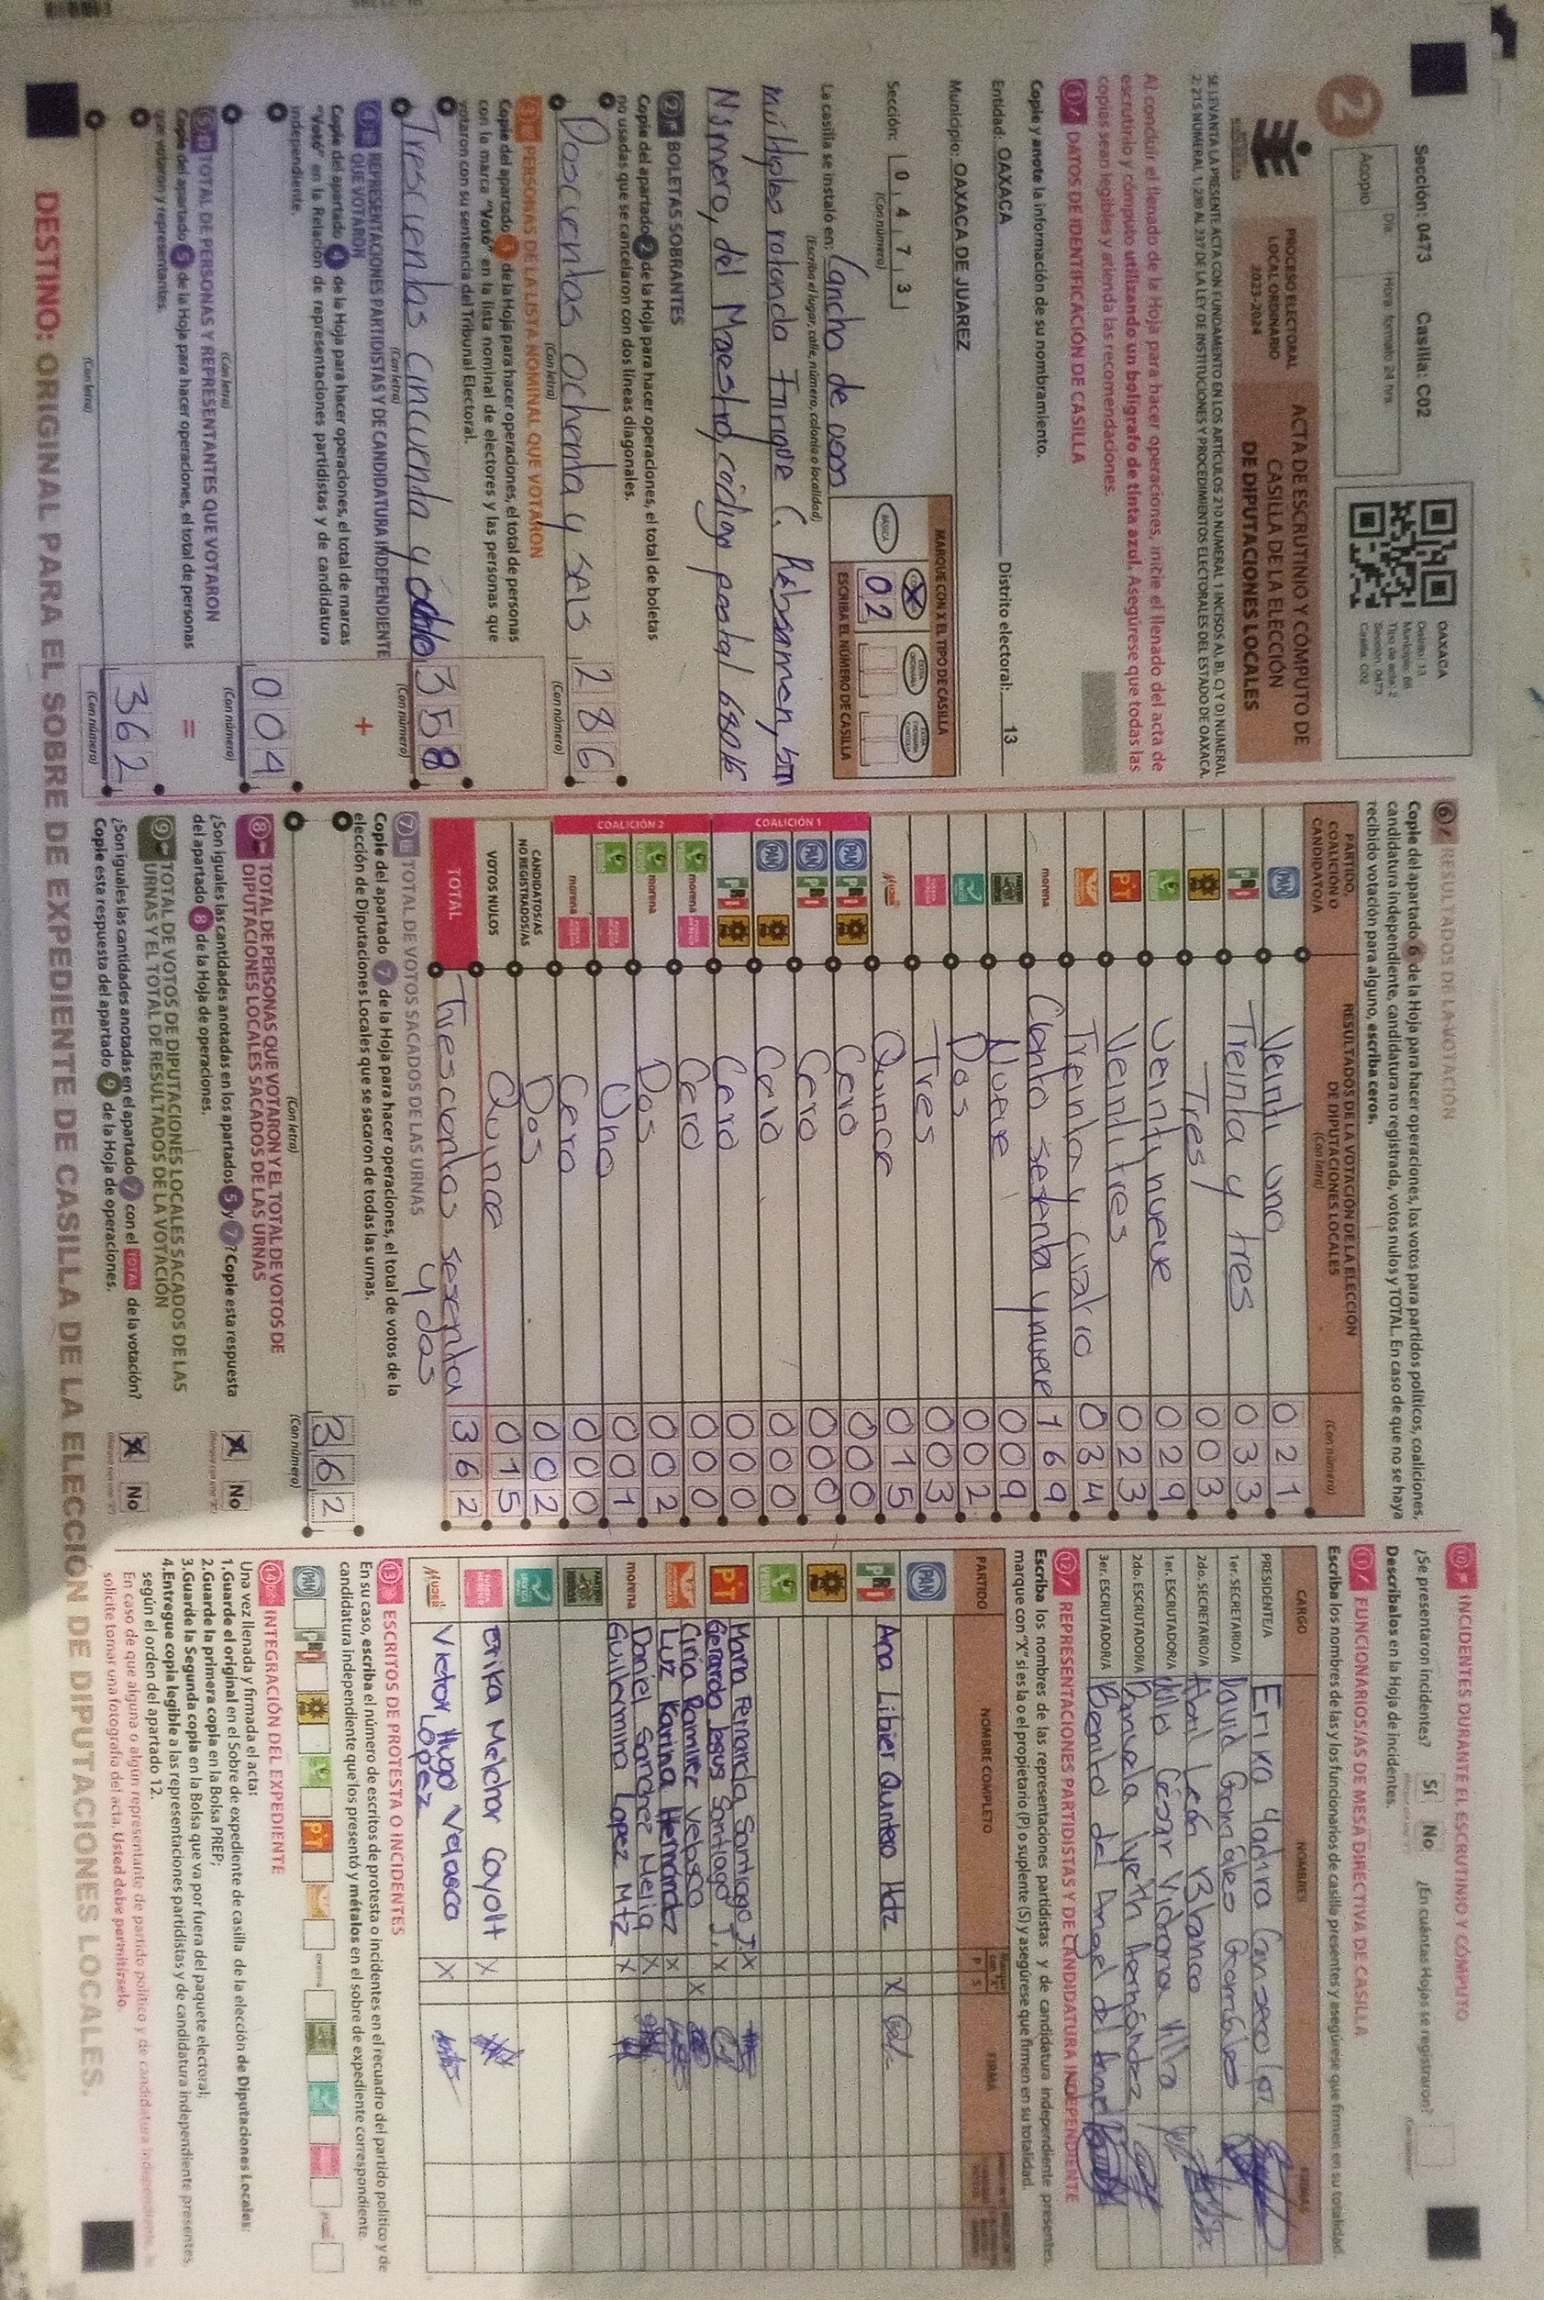 Sección: 0473 Casilla: C02
2
Acopio
Día
Hora formato 24 hrs.
OAXACA
Distrito: 13
Municipio: 66
Tipo de acta: 2
Sección: 0473
Casilla: C02
PROCESO ELECTORAL
LOCAL ORDINARIO
2023-2024
ACTA DE ESCRUTINIO Y CÓMPUTO DE
CASILLA DE LA ELECCIÓN
DE DIPUTACIONES LOCALES
SE LEVANTA LA PRESENTE ACTA CON FUNDAMENTO EN LOS ARTÍCULOS 210 NUMERAL 1 INCISOS A), B), C) Y D) NUMERAL
2; 215 NUMERAL 1; 230 AL 237 DE LA LEY DE INSTITUCIONES Y PROCEDIMIENTOS ELECTORALES DEL ESTADO DE OAXACA.
Al concluir el llenado de la Hoja para hacer operaciones, inicie el llenado del acta de
escrutinio y cómputo utilizando un bolígrafo de tinta azul. Asegúrese que todas las
copias sean legibles y atienda las recomendaciones.
1 DATOS DE IDENTIFICACIÓN DE CASILLA
Copie y anote la información de su nombramiento.
Entidad: OAXACA Distrito electoral: 13
Municipio: OAXACA DE JUAREZ
Sección: 0 4 7 3
(Con número)
MARQUE CON X EL TIPO DE CASILLA
BÁSICA
02
ESCRIBA EL NÚMERO DE CASILLA
La casilla se instaló en: Cancha de usos
(Escriba el lugar, calle, número, colonia o localidad)
múltiples rotonda Tinque C. Rébsamen, sin
Número, del Maestro, código postal 68016
2 BOLETAS SOBRANTES
Copie del apartado 2 de la Hoja para hacer operaciones, el total de boletas
no usadas que se cancelaron con dos líneas diagonales.
Doscientas ochenta y seis 286
(Con letra) (Con número)
3 PERSONAS DE LA LISTA NOMINAL QUE VOTARON
Copie del apartado 3 de la Hoja para hacer operaciones, el total de personas
con la marca "Votó" en la lista nominal de electores y las personas que
votaron con su sentencia del Tribunal Electoral.
Trescientas cincuenta y ocho 358
(Con letra) (Con número)
+
4 REPRESENTACIONES PARTIDISTAS Y DE CANDIDATURA INDEPENDIENTE
QUE VOTARON
Copie del apartado 4 de la Hoja para hacer operaciones, el total de marcas
"Votó" en la Relación de representaciones partidistas y de candidatura
independiente.
004
(Con letra) (Con número)
=
5 TOTAL DE PERSONAS Y REPRESENTANTES QUE VOTARON
Copie del apartado 5 de la Hoja para hacer operaciones, el total de personas
que votaron y representantes.
362
(Con letra) (Con número)
6 RESULTADOS DE LA VOTACIÓN
Copie del apartado 6 de la Hoja para hacer operaciones, los votos para partidos políticos, coaliciones,
candidatura independiente, candidatura no registrada, votos nulos y TOTAL. En caso de que no se haya
recibido votación para alguno, escriba ceros.
PARTIDO,
COALICIÓN O
CANDIDATO/A
RESULTADOS DE LA VOTACIÓN DE LA ELECCIÓN
DE DIPUTACIONES LOCALES
(Con letra)
(Con número)
PAN Veinti uno 021
PRI Treinta y tres 033
PRD Tres 003
VERDE Veintinueve 029
PT Veintitres 023
Treinta y cuatro 034
morena Ciento sesenta y nueve 169
Nueve 009
Dos 002
Tres 003
Mujer Quince 015
COALICIÓN 1
PAN PRI PRD Cero 000
PAN PRI Cero 000
PAN PRD Cero 000
PRI PRD Cero 000
COALICIÓN 2
VERDE morena Cero 000
VERDE morena Dos 002
VERDE Uno 001
morena Cero 000
CANDIDATOS/AS
NO REGISTRADOS/AS Dos 002
VOTOS NULOS Quince 015
TOTAL Trescientos sesenta y dos 362
7 TOTAL DE VOTOS SACADOS DE LAS URNAS
Copie del apartado 7 de la Hoja para hacer operaciones, el total de votos de la
elección de Diputaciones Locales que se sacaron de todas las urnas.
362
(Con letra) (Con número)
8 TOTAL DE PERSONAS QUE VOTARON Y EL TOTAL DE VOTOS DE
DIPUTACIONES LOCALES SACADOS DE LAS URNAS
¿Son iguales las cantidades anotadas en los apartados 5 y 7? Copie esta respuesta
del apartado 8 de la Hoja de operaciones.
No
9 TOTAL DE VOTOS DE DIPUTACIONES LOCALES SACADOS DE LAS
URNAS Y EL TOTAL DE RESULTADOS DE LA VOTACIÓN
¿Son iguales las cantidades anotadas en el apartado 7 con el TOTAL de la votación?
Copie esta respuesta del apartado 9 de la Hoja de operaciones.
No
10 INCIDENTES DURANTE EL ESCRUTINIO Y CÓMPUTO
¿Se presentaron incidentes? Sí No ¿En cuántas Hojas se registraron?
Descríbalos en la Hoja de incidentes.
11 FUNCIONARIOS/AS DE MESA DIRECTIVA DE CASILLA
Escriba los nombres de las y los funcionarios de casilla presentes y asegúrese que firmen en su totalidad.
CARGO NOMBRES FIRMAS
PRESIDENTE/A Erika Yadira Canseco
1er. SECRETARIO/A David González González
2do. SECRETARIO/A Abril León Blanco
1er. ESCRUTADOR/A Julio César Vidrana Villa
2do. ESCRUTADOR/A Daniela Iyetzi Hernández
3er. ESCRUTADOR/A Benito del Angel del Angel
12 REPRESENTACIONES PARTIDISTAS Y DE CANDIDATURA INDEPENDIENTE
Escriba los nombres de las representaciones partidistas y de candidatura independiente presentes,
marque con "X" si es la o el propietario (P) o suplente (S) y asegúrese que firmen en su totalidad.
PARTIDO NOMBRE COMPLETO P S FIRMA
PAN
PRI Ana Liber Quintero Hdz X
PRD
VERDE
PT Maria Fernanda Santiago J. X
Gerardo Jesus Santiago J. X
Ciria Ramirez Velasco X
Luz Karina Hernández X
morena Daniel Sanchez Mejia X
Guillermina Lopez Mtz X
Erika Melchor Coyolt X
Mujer Victor Hugo Velasco X
López
13 ESCRITOS DE PROTESTA O INCIDENTES
En su caso, escriba el número de escritos de protesta o incidentes en el recuadro del partido político y de
candidatura independiente que los presentó y métalos en el sobre de expediente correspondiente.
PAN PRI PRD VERDE PT morena
14 INTEGRACIÓN DEL EXPEDIENTE
Una vez llenada y firmada el acta:
1.Guarde el original en el Sobre de expediente de casilla de la elección de Diputaciones Locales;
2.Guarde la primera copia en la Bolsa PREP;
3.Guarde la Segunda copia en la Bolsa que va por fuera del paquete electoral;
4.Entregue copia legible a las representaciones partidistas y de candidatura independiente presentes,
según el orden del apartado 12.
En caso de que alguna o algún representante de partido político y de candidatura independiente, le
solicite tomar una fotografía del acta. Usted debe permitírselo.
DESTINO: ORIGINAL PARA EL SOBRE DE EXPEDIENTE DE CASILLA DE LA ELECCIÓN DE DIPUTACIONES LOCALES.